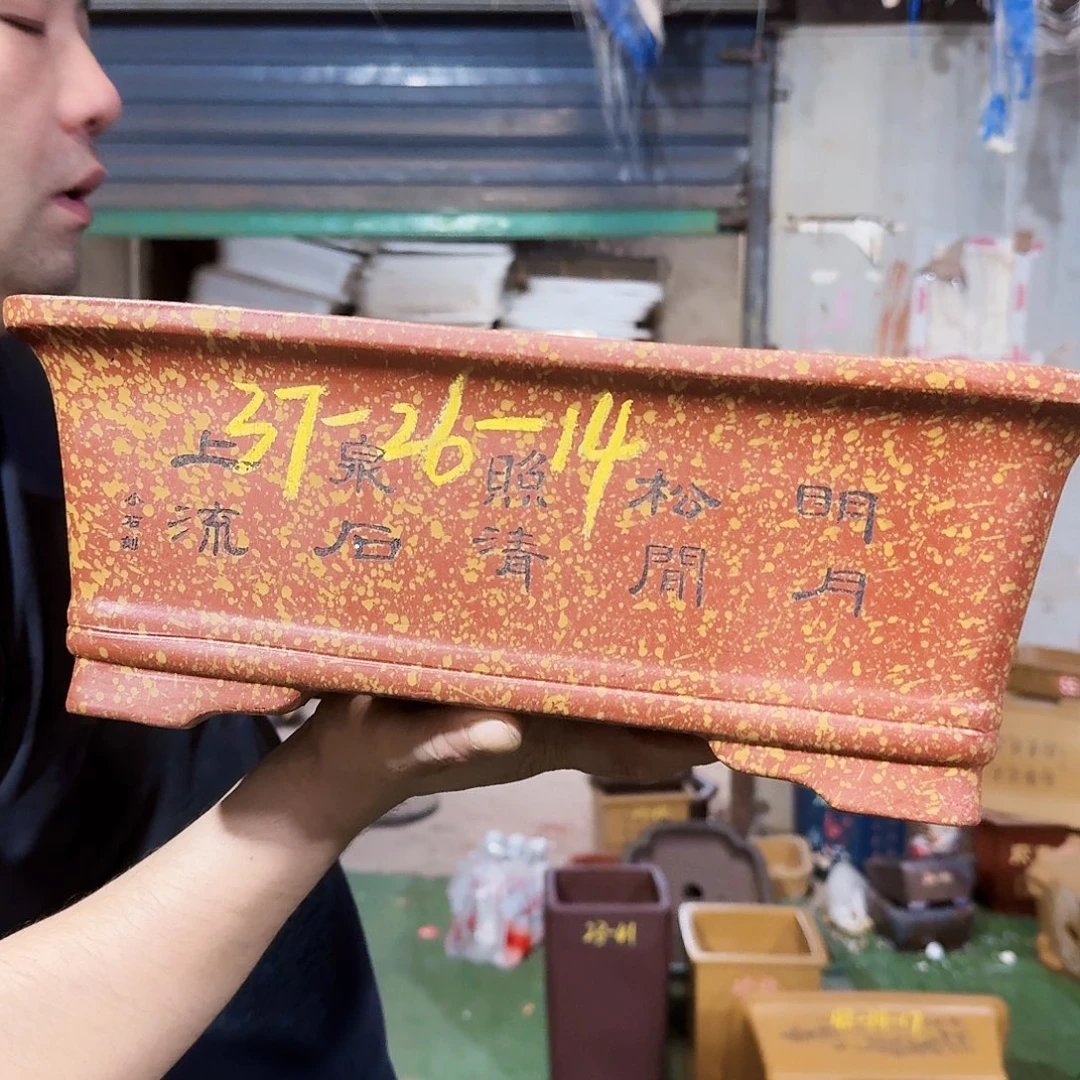 37-26-14
明月
松間
照清
泉石
上流
小石刻
23-41